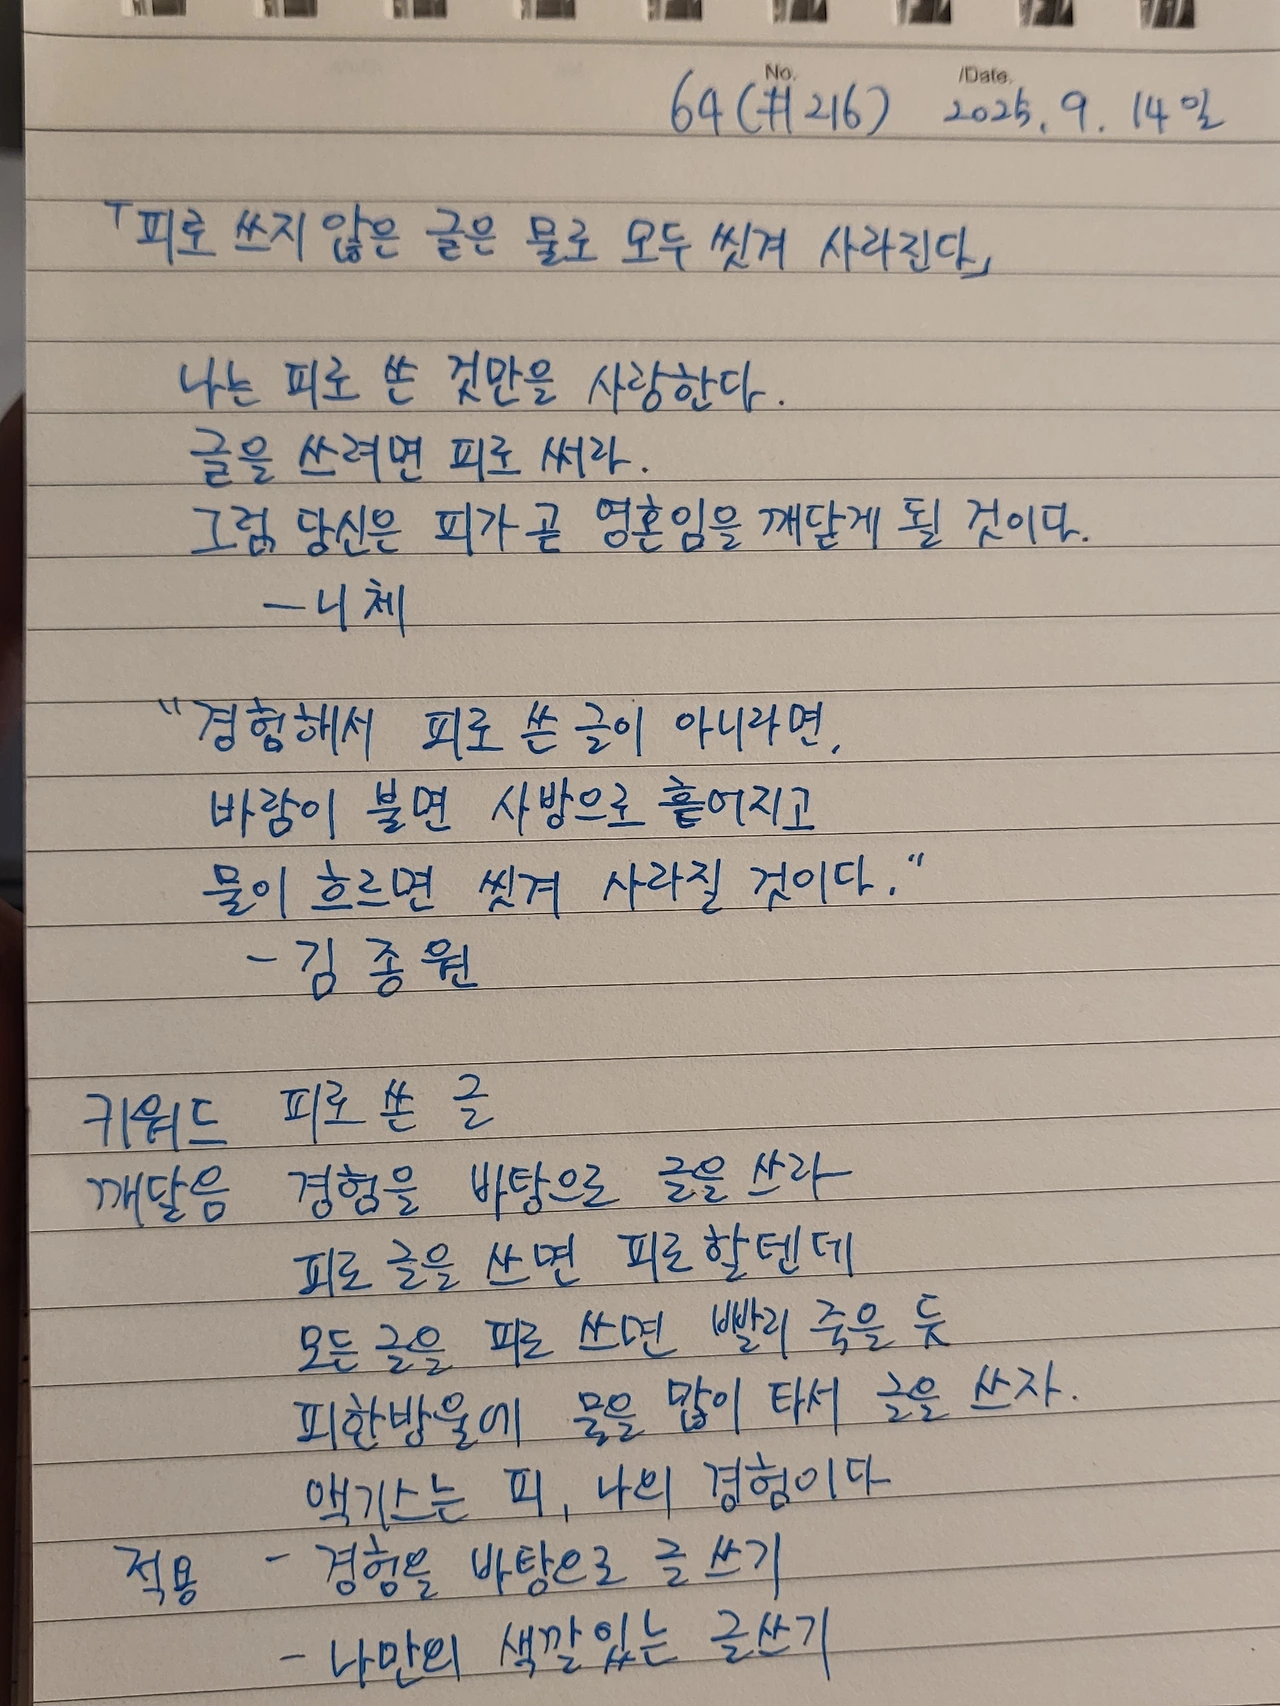 No. /Date.
64(#216) 2025. 9. 14일
「피로 쓰지 않은 글은 물로 모두 씻겨 사라진다」
나는 피로 쓴 것만을 사랑한다.
글을 쓰려면 피로 써라.
그럼, 당신은 피가 곧 영혼임을 깨닫게 될 것이다.
—니체
"경험해서 피로 쓴 글이 아니라면,
바람이 불면 사방으로 흩어지고
물이 흐르면 씻겨 사라질 것이다."
- 김종원
키워드 피로 쓴 글
깨달음 경험을 바탕으로 글을 쓰라
피로 글을 쓰면 피로할텐데
모든 글을 피로 쓰면 빨리 죽을 듯
피한방울에 물을 많이 타서 글을 쓰자.
액기스는 피, 나의 경험이다
적용 - 경험을 바탕으로 글쓰기
- 나만의 색깔있는 글쓰기